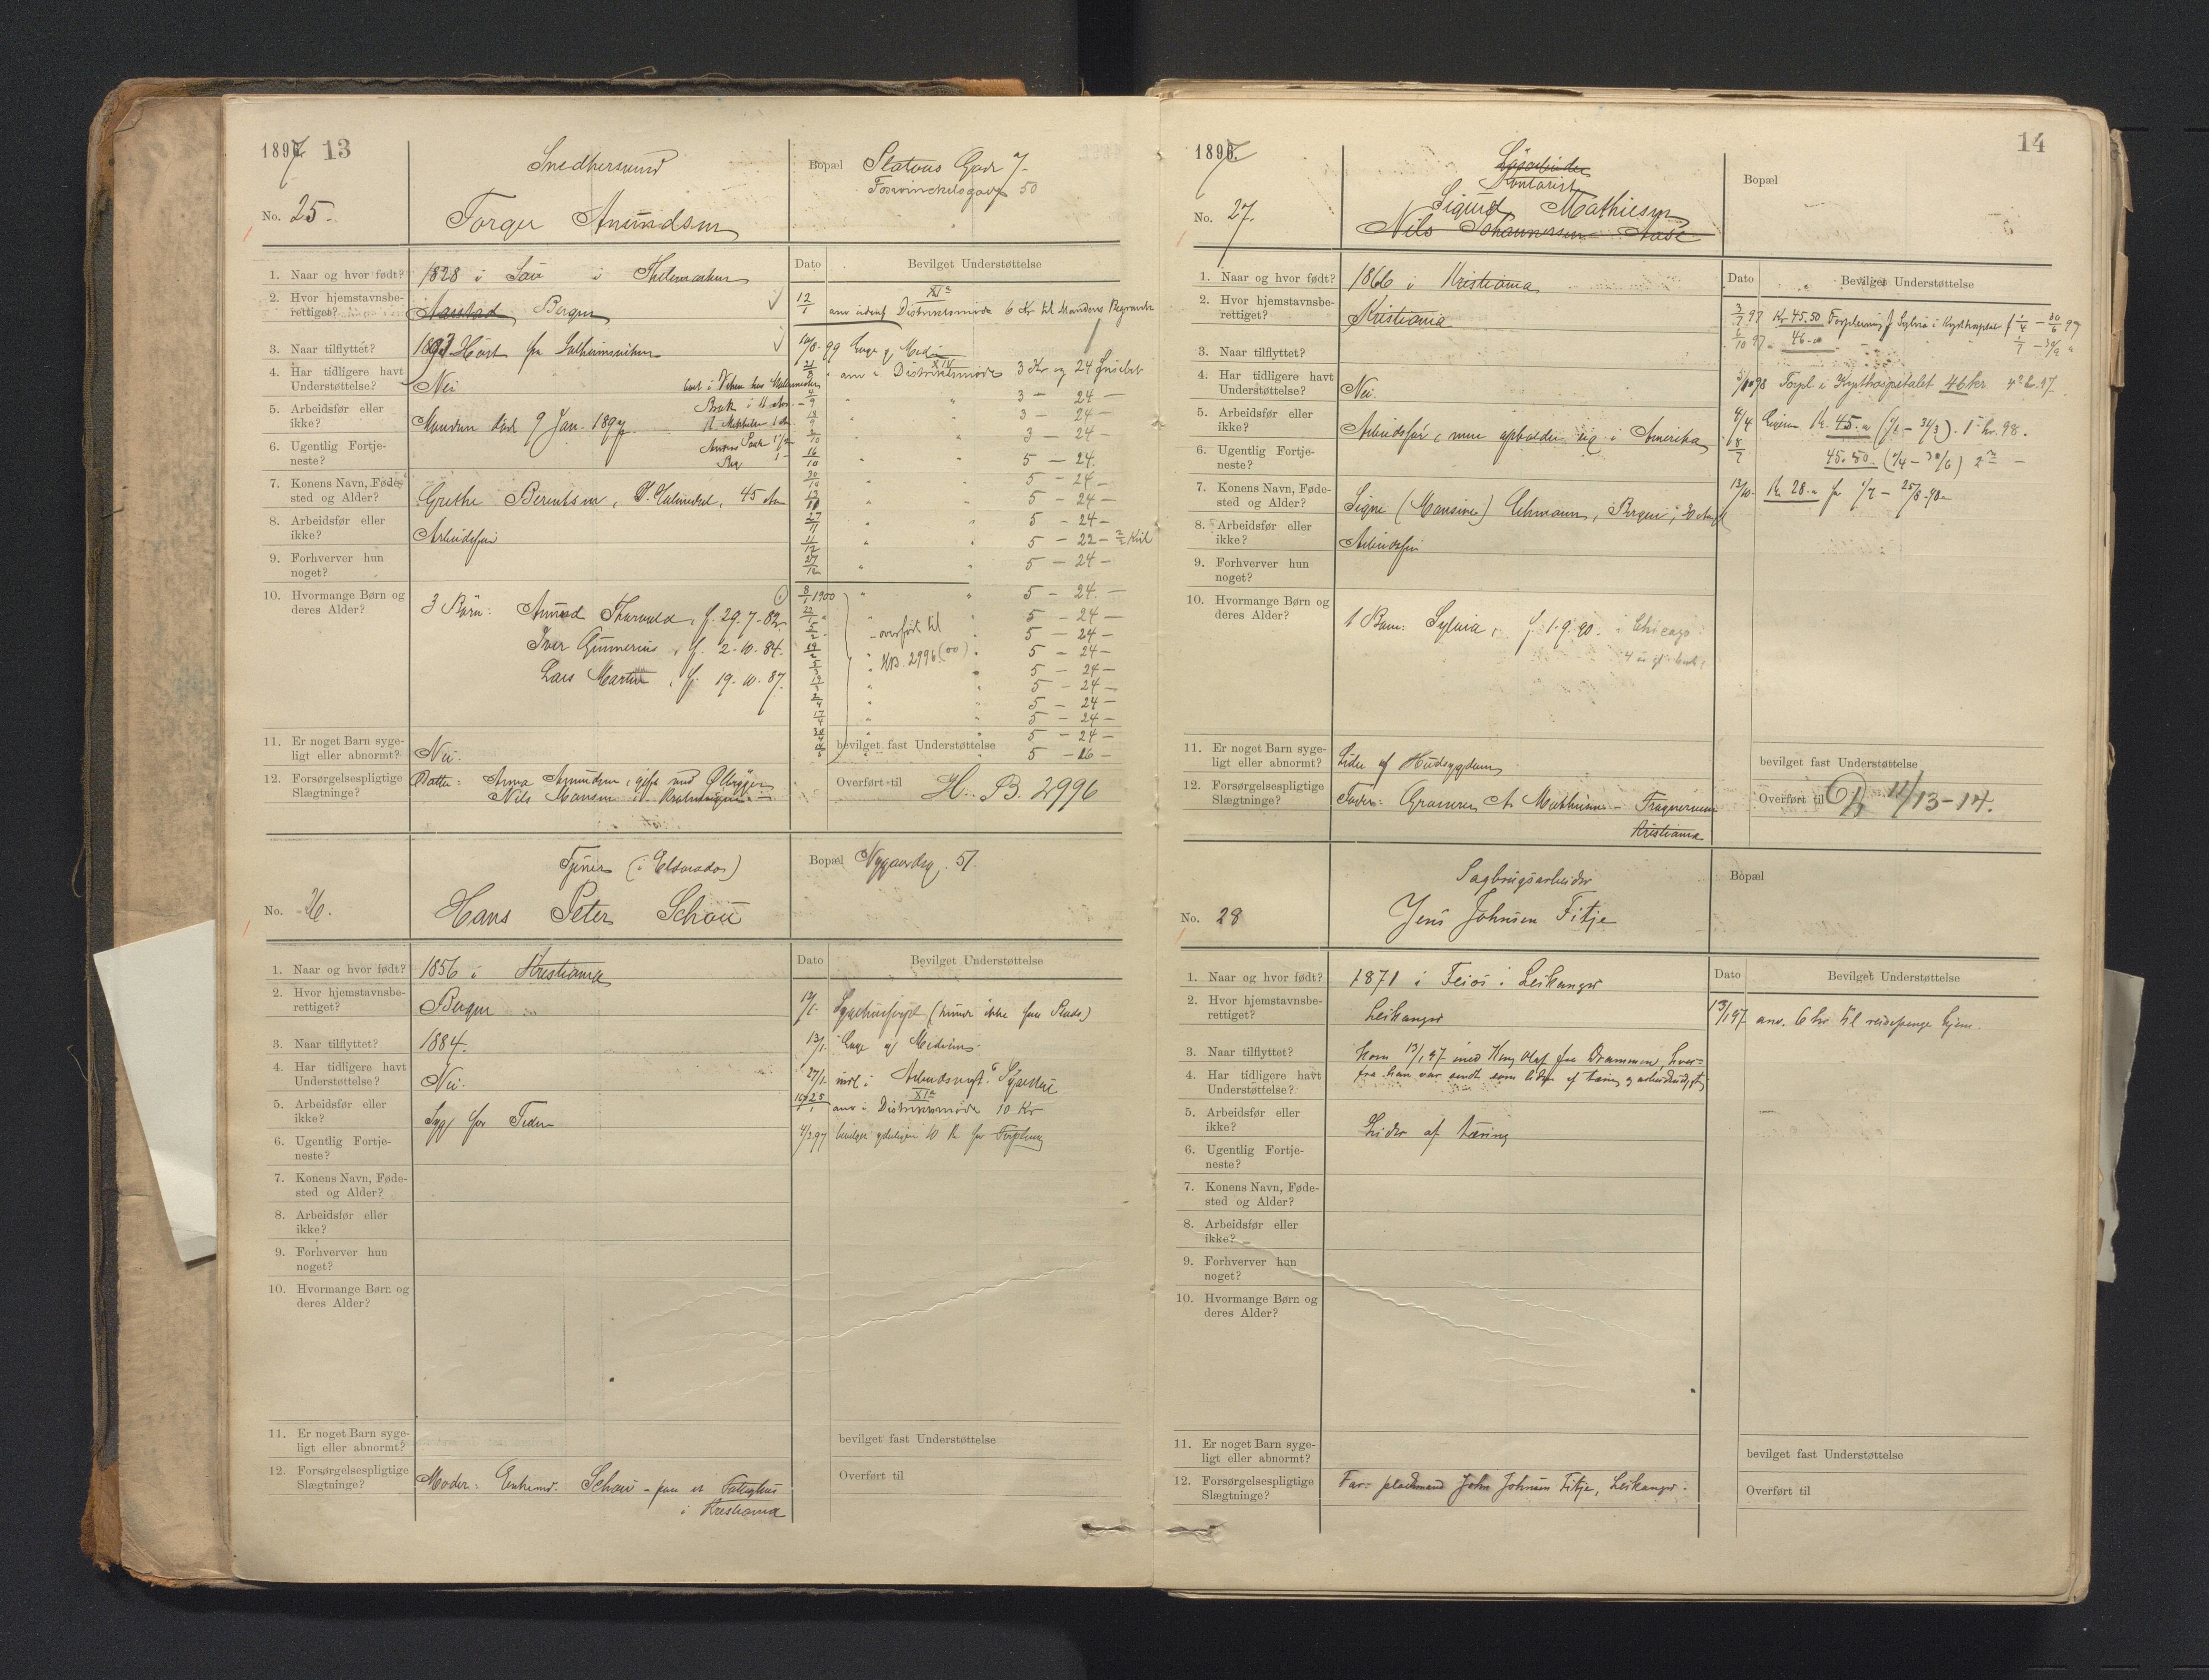 1897. 13
No. 25.
Snedkersvend
Torger Amundsen
Bopæl Statous Gad 7
50
1. Naar og hvor født? 1828 i i Thelemarken
2. Hvor hjemstavnsbe-
rettiget? Aarstad Bergen
3. Naar tilflyttet? Høst fra Solheimsviken
4. Har tidligere havt
Understøttelse? Nei
5. Arbeidsfør eller
ikke? Manden død 9 Jan. 1897.
6. Ugentlig Fortje-
neste?
7. Konens Navn, Føde-
sted og Alder? Grethe Berentsen, 45 Aar
8. Arbeidsfør eller
ikke? Arbeidsfør
9. Forhverver hun
noget?
10. Hvormange Børn og
deres Alder? 3 Børn: Amund Tharvald, f. 29.7-82
Iver Gunnerius, f. 2-10-84.
Lars Martin, f. 19.10.87.
11. Er noget Barn syge-
ligt eller abnormt? Nei.
12. Forsørgelsespligtige
Slægtninge? Datter: Anna Amundsen, gift med
Nils Monsen
Dato Bevilget Understøttelse
12/1 anv. XIa Distriktsmøde 6 Kr til Mandens Begravelse
99 Læge og Medicin
anv i Distriktsmøde XIa 3 Kr og 24
3 — 24 —
3 — 24 —
3 — 24 —
5 — 24.
5 — 24 —
5 — 24 —
5 — 24 —
5 — 22 —
5 — 24 —
8/1 1900 5 — 24. —
5 — 24 —
overført til 5 — 24 —
HB. 2996 (00) 5 — 24 —
5 — 24 —
5 — 24 —
5 — 24 —
5 — 24 —
5 — 24 —
bevilget fast Understøttelse 5 — 16 —
Overført til H. B. 2996
No. 26.
Tjener (i Eldorado)
Hans Peter Schou
Bopæl Nygaardsg. 51.
1. Naar og hvor født? 1856 i Kristiania
2. Hvor hjemstavnsbe-
rettiget? Bergen
3. Naar tilflyttet? 1884.
4. Har tidligere havt
Understøttelse? Nei.
5. Arbeidsfør eller
ikke? Syg for Tiden
6. Ugentlig Fortje-
neste?
7. Konens Navn, Føde-
sted og Alder?
8. Arbeidsfør eller
ikke?
9. Forhverver hun
noget?
10. Hvormange Børn og
deres Alder?
11. Er noget Barn syge-
ligt eller abnormt?
12. Forsørgelsespligtige
Slægtninge? Moder: Enkemd. Schou - paa et Fattighus
i Kristiania
Dato Bevilget Understøttelse
Sygehusforpl. (kunde ikke faa Plads)
13/1. Læge og Medicin
27/1. indl i Arbeidsanst.s Sygestue
anv i Distriktsmøde XIa 10 Kr
4/2 97 bevilget yderligere 10 Kr for Forpleining
bevilget fast Understøttelse
Overført til
1897. 14
No. 27.
Kontorist
Sigurd Mathiesen
Nils Johannessen Aase
Bopæl
1. Naar og hvor født? 1866 i Kristiania
2. Hvor hjemstavnsbe-
rettiget? Kristiania
3. Naar tilflyttet?
4. Har tidligere havt
Understøttelse? Nei.
5. Arbeidsfør eller
ikke? Arbeidsfør, men opholder sig i Amerika
6. Ugentlig Fortje-
neste?
7. Konens Navn, Føde-
sted og Alder? Signe (Monsine) Lehmann, Bergen, 30 Aar
8. Arbeidsfør eller
ikke? Arbeidsfør
9. Forhverver hun
noget?
10. Hvormange Børn og
deres Alder? 1 Barn: Sylvia, f. 1.9.90. i Chicago
11. Er noget Barn syge-
ligt eller abnormt? Lider af Hudsygdom
12. Forsørgelsespligtige
Slægtninge? Fader: A. Mathiesen -
Kristiania
Dato Bevilget Understøttelse
3/7 97 Kr 45.50 Forpleining f Sylvia i Kysthospital f 1/4 – 30/6 97
6/10 97 " 46.00 1/7 – 30/9 "
5/1 98 Forpl. i Kysthospitalet 46 kr 4de kv. 97.
4/4 Ligesaa Kr. 45.00 (1/1 – 31/3). 1ste kv. 98.
8/7 45.50 (1/4 – 30/6) 2det —
13/10 Kr. 28.00 fra 1/7 – 25/8-98
bevilget fast Understøttelse
Overført til 11/13-14.
No. 28
Sagbrugsarbeider
Jens Johnsen Fitje
Bopæl
1. Naar og hvor født? 1871 i Feios i Leikanger
2. Hvor hjemstavnsbe-
rettiget? Leikanger
3. Naar tilflyttet? kom 13/1 97 med Kong Olaf fra Drammen, hvor-
4. Har tidligere havt
Understøttelse? fra han var sendt som lidende af tæring og arbeidsudygtig
5. Arbeidsfør eller
ikke? Lider af tæring
6. Ugentlig Fortje-
neste?
7. Konens Navn, Føde-
sted og Alder?
8. Arbeidsfør eller
ikke?
9. Forhverver hun
noget?
10. Hvormange Børn og
deres Alder?
11. Er noget Barn syge-
ligt eller abnormt?
12. Forsørgelsespligtige
Slægtninge? Far: pladsmand John Johnsen Fitje, Leikanger.
Dato Bevilget Understøttelse
13/1 97 anv. 6 kr til reisepenge hjem.
bevilget fast Understøttelse
Overført til